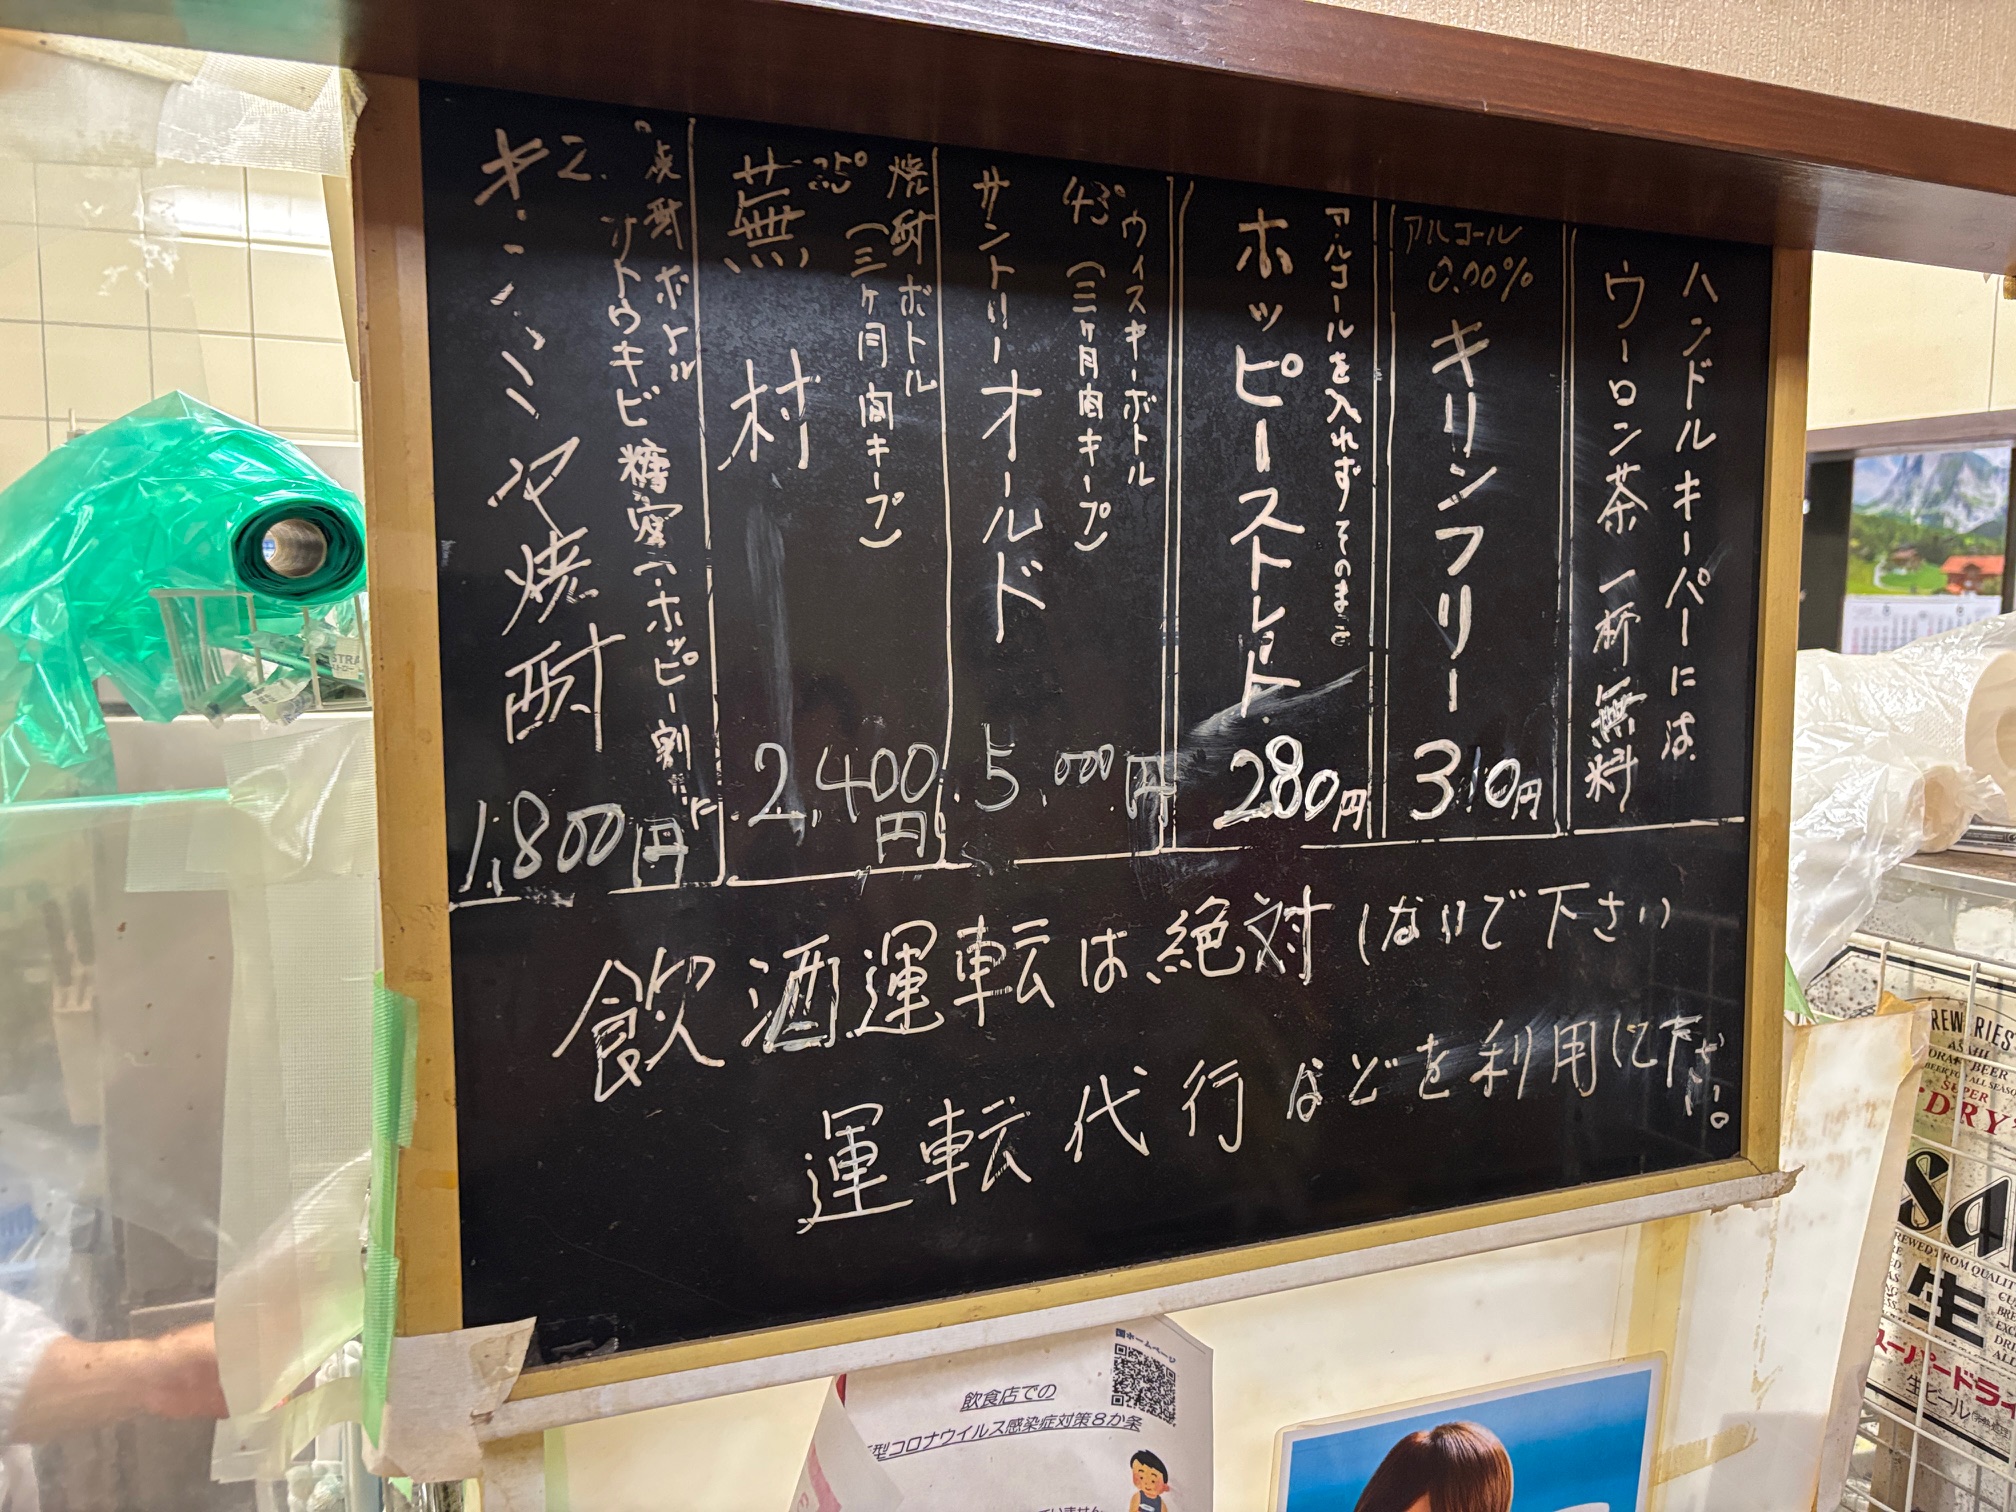 ハンドルキーパーには
ウーロン茶 一杯無料
アルコール
0.00%
キリンフリー
310円
アルコールを入れずそのまま
ホッピーストレート
280円
ウィスキーボトル
43° (三ヶ月間キープ)
サントリーオールド
5,000円
焼酎ボトル
(三ヶ月間キープ)
25°
蕪村
2,400
円
焼酎ボトル
サトウキビ糖蜜
ホッピー割に
キンミヤ焼酎
1,800円
飲酒運転は絶対しないで下さい
運転代行などを利用して下さい。
国ホームページ
飲食店での
型コロナウイルス感染症対策8か条
REWERIES
ASAHI
BEER
BEER FOR ALL SEASO
SUPER
DRY
REWED FROM QUALIT
生
スーパードライ
生ビール